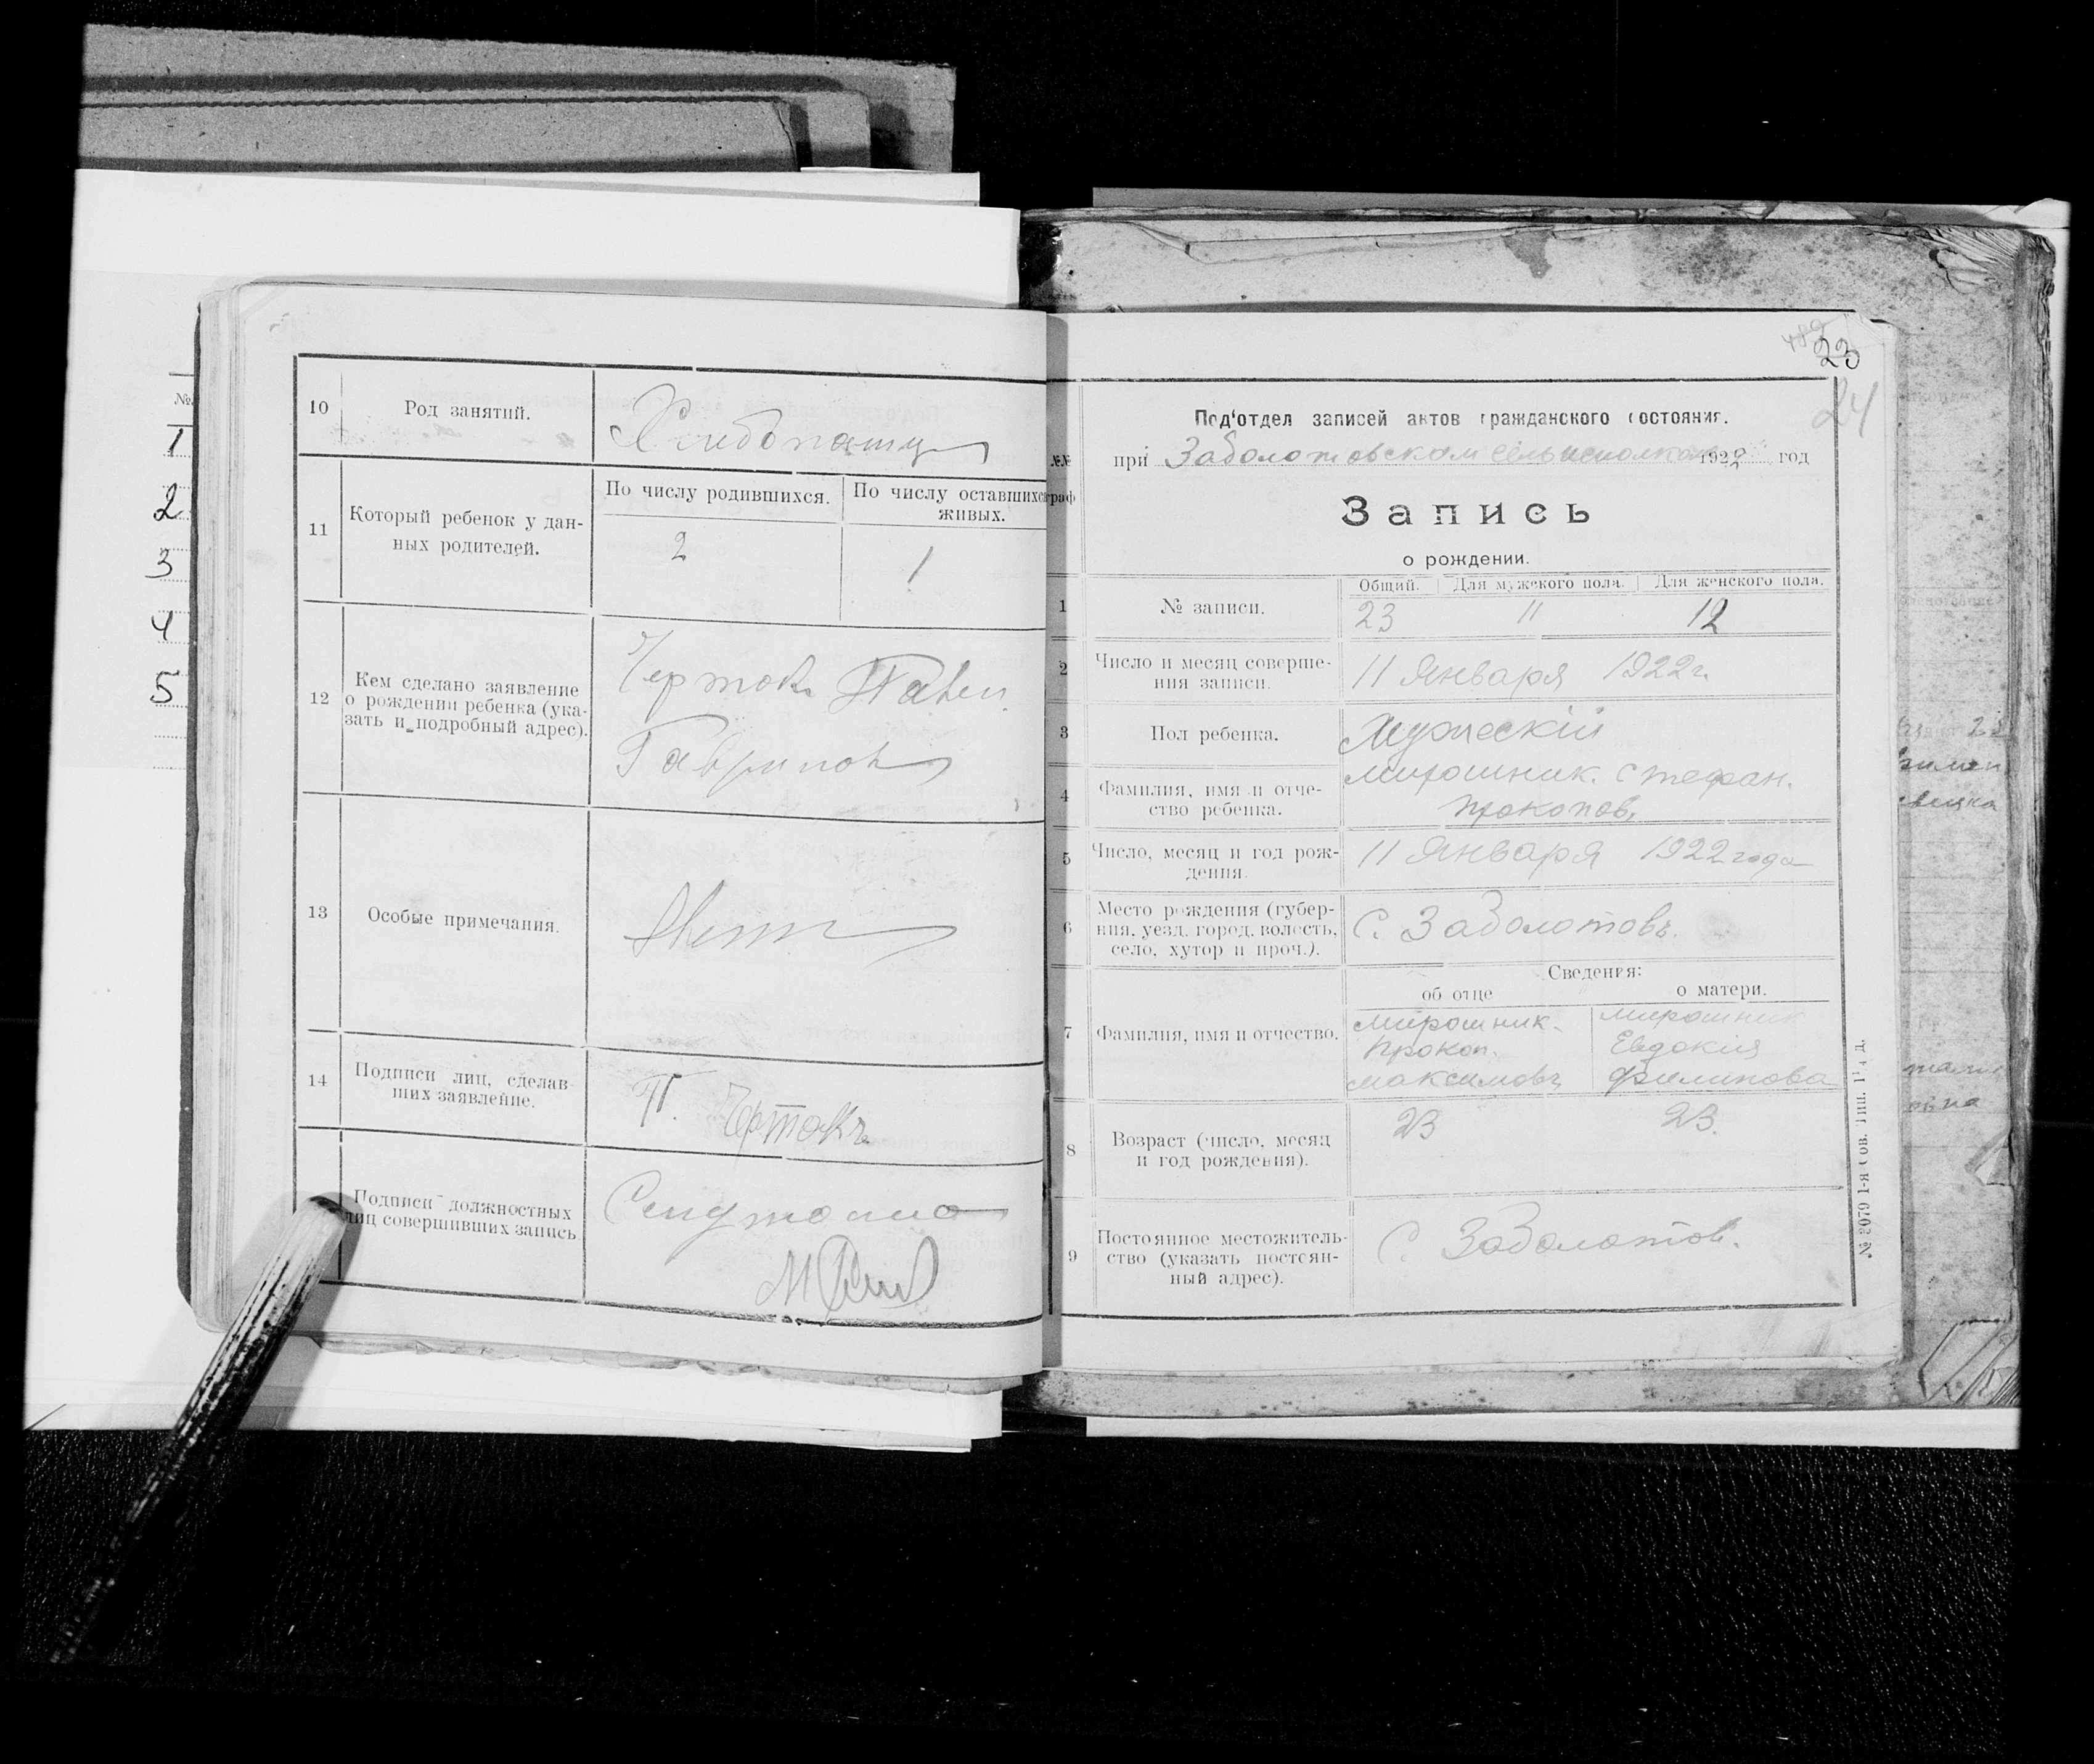 №
1
2
3
4
5
10
Род занятий.
Хлибопашц
11
Который ребенок у дан-
ных родителей.
По числу родившихся.
По числу оставшихся
живых.
2
1
12
Кем сделано заявление
о рождении ребенка (ука-
зать и подробный адрес).
Чертокъ Павел.
Гаврилов
13
Особые примечания.
14
Подписи лиц, сделав-
ших заявление.
П. Чертокъ
Подписи должностных
лиц совершивших запись
23
24
Под'отдел записей актов гражданского состояния.
№№
граф
при Заболотовском сельисполкоме 1922 год
Запись
о рождении.
1
№ записи.
Общий.
Для мужского пола.
Для женского пола.
23
11
12
2
Число и месяц соверше-
ния записи.
11 Января 1922 г.
3
Пол ребенка.
Мужескій
4
Фамилия, имя и отче-
ство ребенка.
Мирошник. Стефан.
Прокопов.
5
Число, месяц и год рож-
дения.
11 Января 1922 года
6
Место рождения (губер-
ния, уезд, город, волость,
село, хутор и проч.).
С. Заболотовъ.
Сведения:
об отце
о матери.
7
Фамилия, имя и отчество.
Мирошник.
Прокоп.
Максимовъ
Мирошник
Евдокия
Филипова
8
Возраст (число, месяц
и год рождения).
23
23.
9
Постоянное местожитель-
ство (указать постоян-
ный адрес).
С. Заболотов.
№ 2079 1-я Сов. Тип.